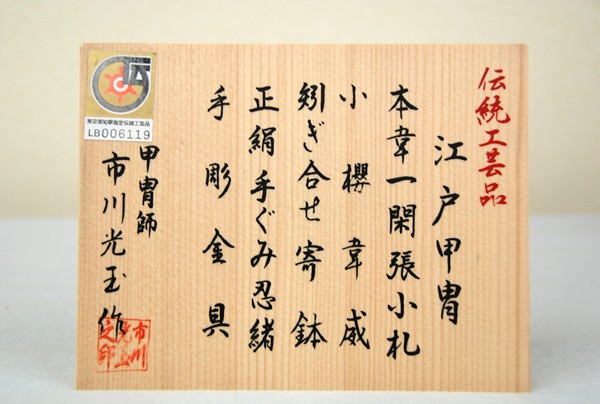 伝統工芸品
江戸甲冑
本韋一閑張小札
小櫻韋威
矧ぎ合せ寄鉢
正絹手ぐみ忍緒
手彫金具
甲冑師
市川光玉作
東京都知事指定伝統工芸品
LB006119
市川
光玉
之印